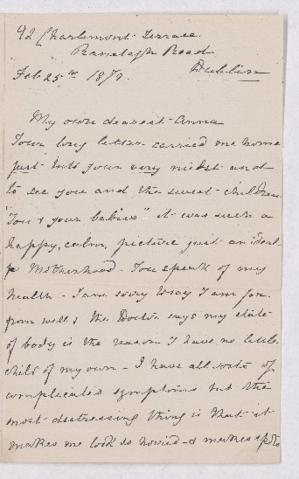 42 Charlemont Terrace.
Ranelagh Road
Feb 25th 187 Dublin
My own dearest Anna
Your long letter carried me home
just into your very midst and
to see you and the sweet children
"You & your babies" it was such a
happy, calm, picture just an Ideal
of Motherhood. You speak of my
health - I am sorry to say I am far
from well & the Doctor says my state
of body is the reason I have no little
child of my own - I have all sorts of
complicated symptoms but the
most distressing thing is that it
makes me look so horrid - & makes